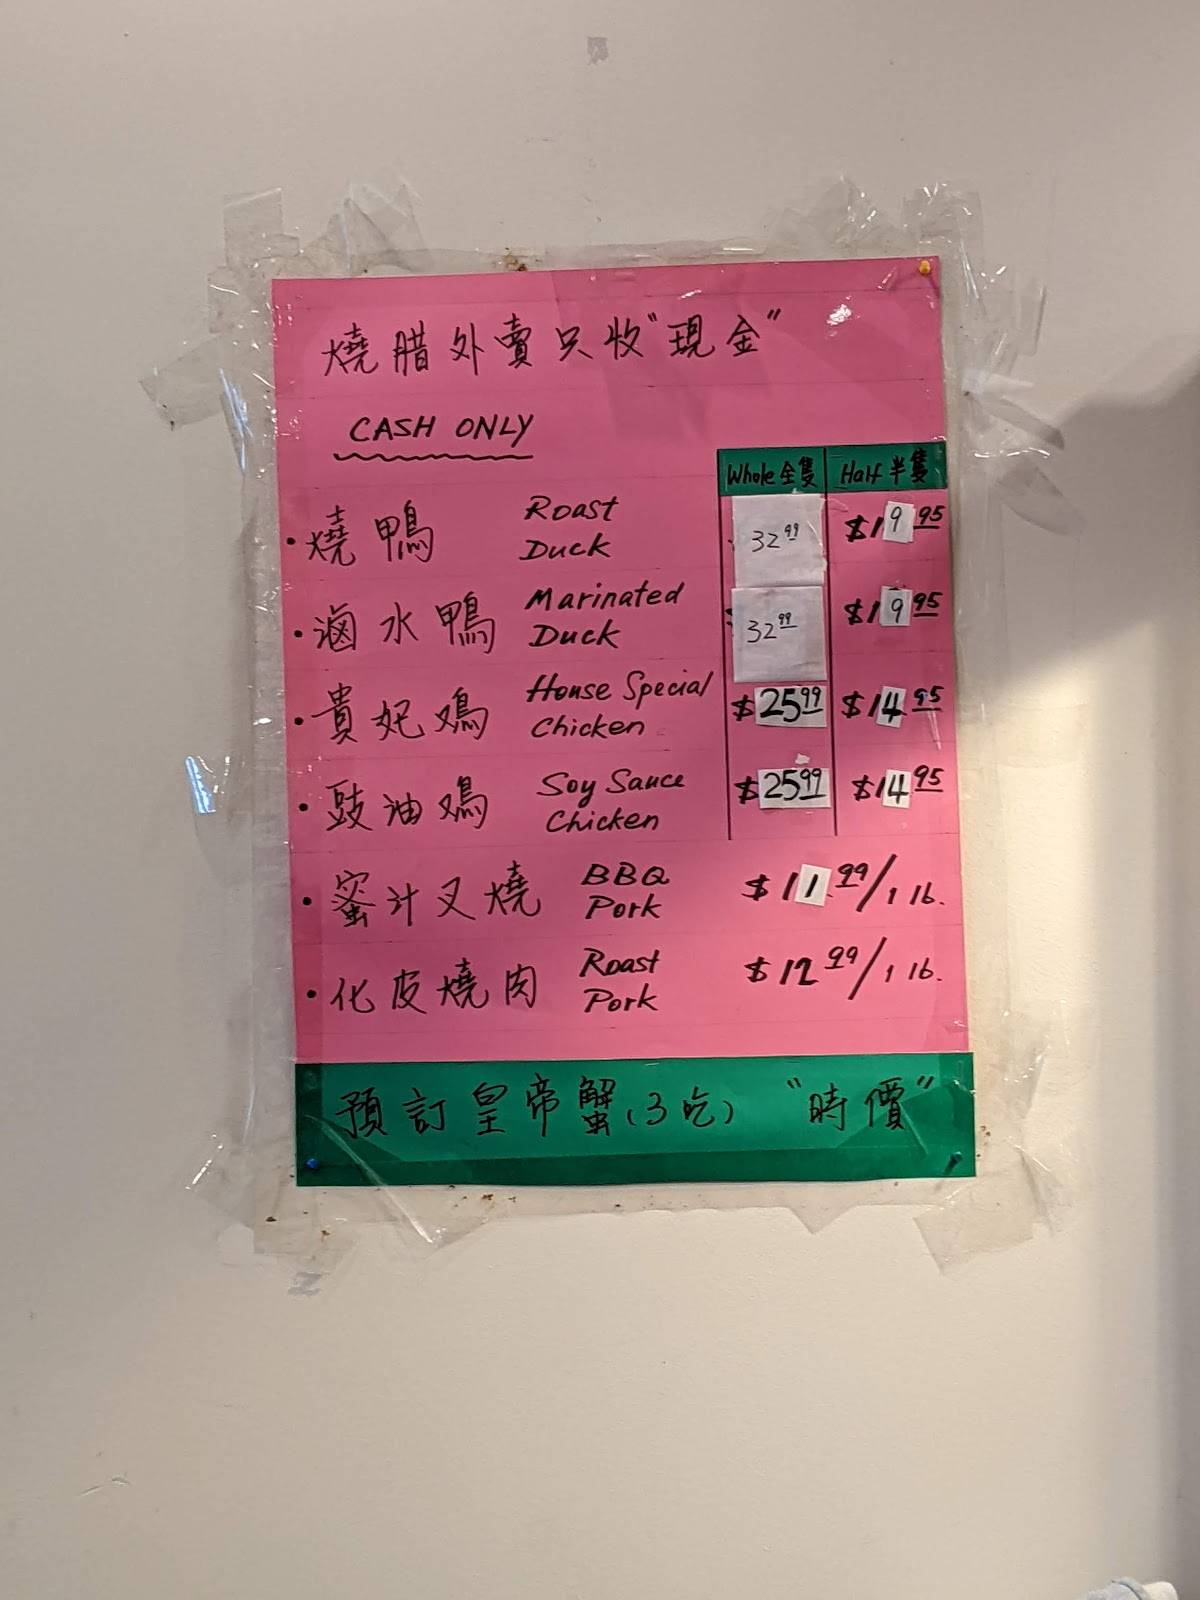 燒腊外賣只收"現金"
CASH ONLY
Whole 全隻 Half 半隻
• 燒鴨 Roast Duck 32.99 $19.95
• 滷水鴨 Marinated Duck 32.99 $19.95
• 貴妃鸡 House Special Chicken $25.99 $14.95
• 豉油鸡 Soy Sauce Chicken $25.99 $14.95
• 蜜汁叉燒 BBQ Pork $11.99/1 lb.
• 化皮燒肉 Roast Pork $12.99/1 lb.
預訂皇帝蟹(3吃) "時價"